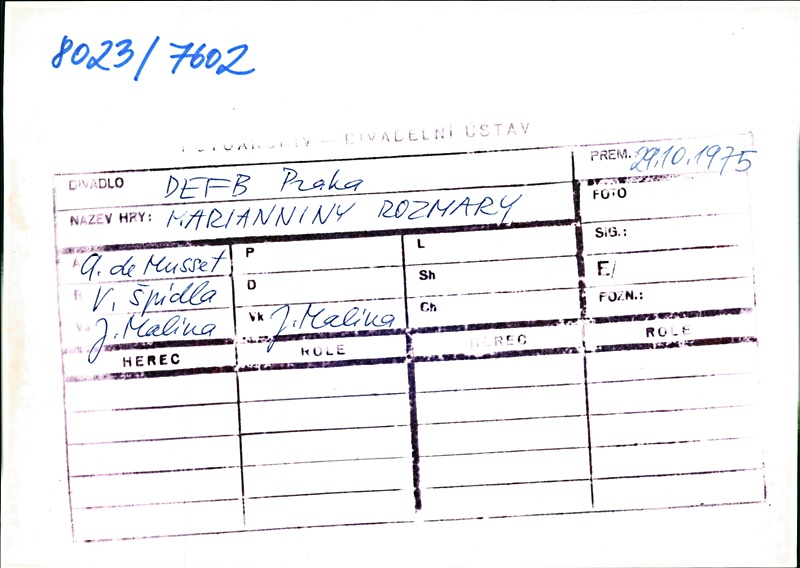 8023/7602
FOTOARCHIV – DIVADELNÍ ÚSTAV
DIVADLO DEFB Praha PREM. 29.10.1975
NÁZEV HRY: MARIANNINY ROZMARY FOTO
A. de Musset P L SIG.:
R V. Špidla D Sh F/
J. Malina Vk J. Malina Ch POZN.:
HEREC ROLE HEREC ROLE